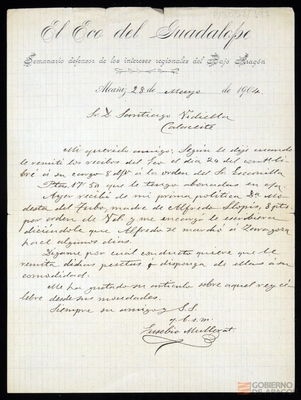 El Eco del Guadalope
Semanario defensor de los intereses regionales del Bajo Aragón
Alcañiz, 28 de Mayo de 1904
Sr. D. Santiago Vidiella
Calaceite
Mi querido amigo: Según le dije cuando
le remití los recibos del Eco el día 20 del actl li-
bré a su cargo 8 d/v a la orden del Sr.
Ptas. 17'50 que le tengo abonadas en c/a
Ayer recibí de mi prima política Mo-
desta del madre de Alfredo 8
por orden de Vd. y me encargó le escribiera
diciéndole que Alfredo se marchó a Zaragoza
hace algunos días.
Dígame por cual conducto quiere que le
remita dichas pesetas o disponga de ellas a su
comodidad.
Me ha gustado su artículo sobre aquel rey cé-
lebre desde sus mocedades.
Siempre su amigo y S.S.
q. b. s. m.
Eusebio Mullerat
GOBIERNO
DE ARAGON